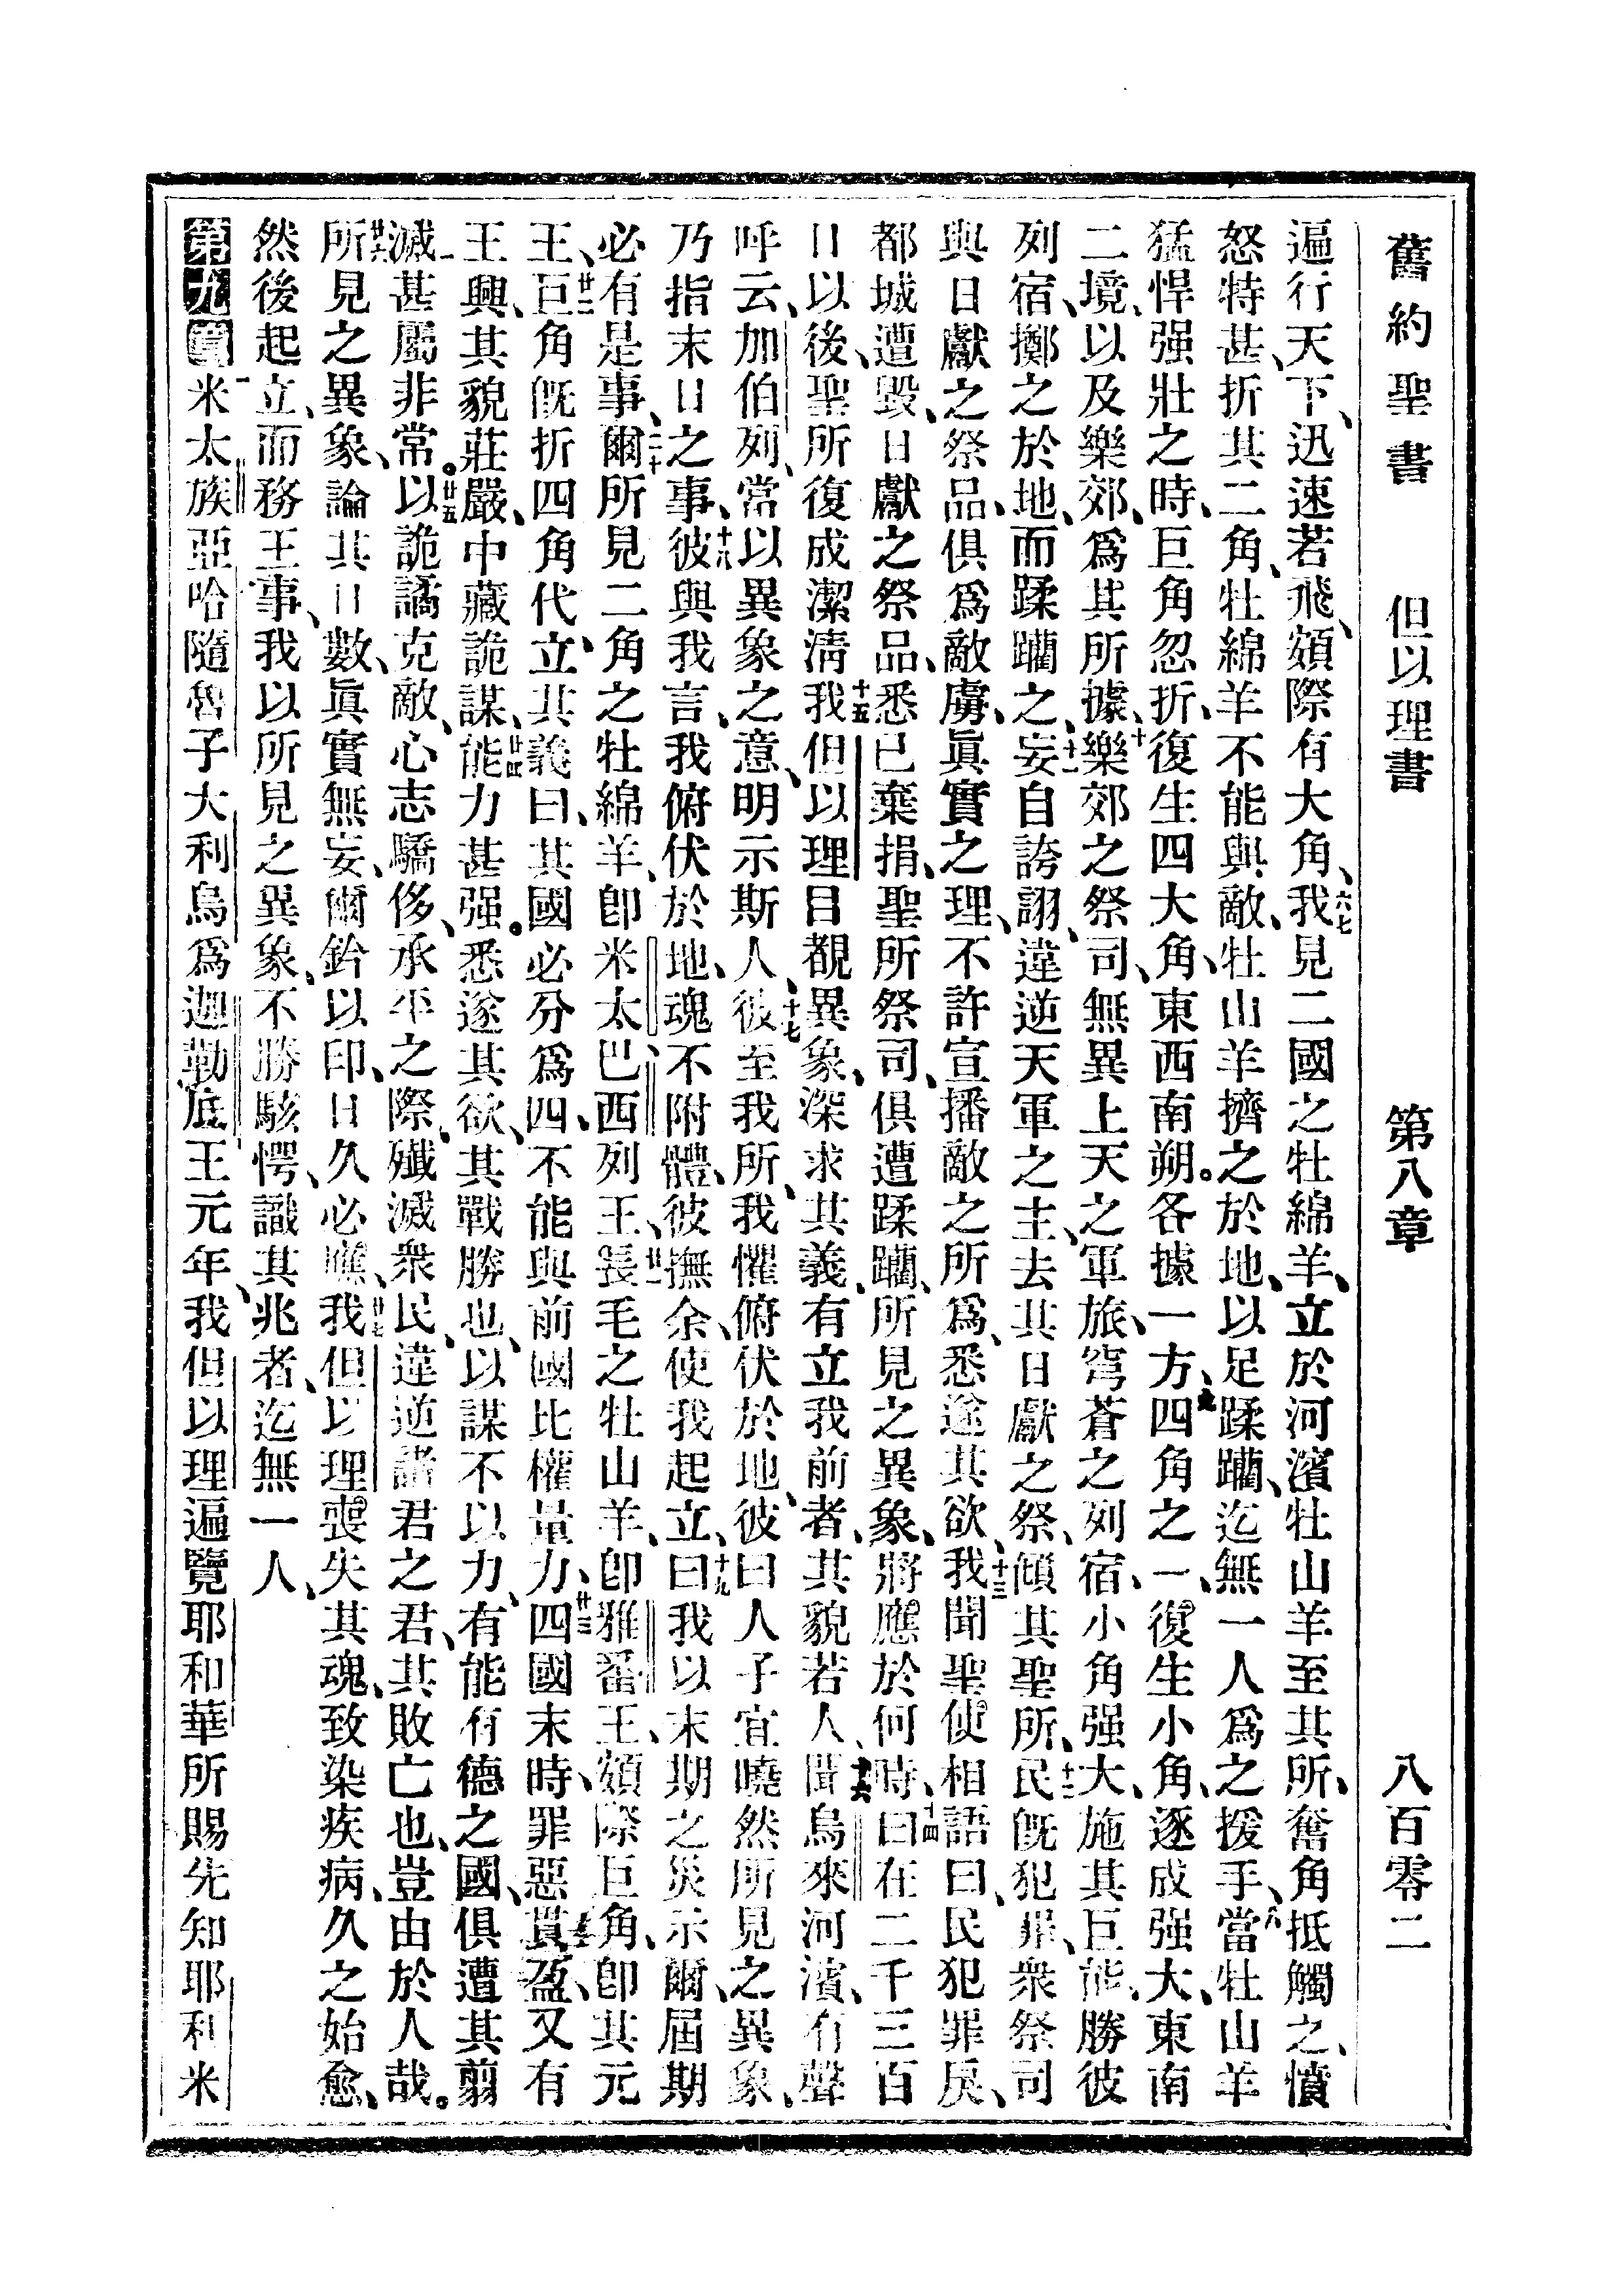 舊約聖書 但以理書 第八章 八百零二
遍行天下、迅速若飛、頞際有大角、六七我見二國之牡綿羊、立於河濱牡山羊至其所、奮角抵觸之、憤
怒特甚、折其二角、牡綿羊不能與敵、牡山羊擠之於地、以足蹂躪、迄無一人爲之援手、八當牡山羊
猛悍强壯之時、巨角忽折、復生四大角、東西南朔。各據一方、九四角之一、復生小角、逐成强大、東南
二境、以及樂郊、爲其所據、十樂郊之祭司、無異上天之軍旅、穹蒼之列宿、小角强大、施其巨能、勝彼
列宿、擲之於地、而蹂躪之、十一妄自誇詡、違逆天軍之主、去其日獻之祭、傾其聖所、十二民旣犯罪、衆祭司
與日獻之祭品、俱爲敵虜、眞實之理、不許宣播敵之所爲、悉遂其欲、十三我聞聖使相語曰、民犯罪戾、
都城遭毀、日獻之祭品、悉已棄捐、聖所祭司、俱遭蹂躪、所見之異象、將應於何時、十四曰在二千三百
日以後、聖所復成潔淸、十五我但以理目覩異象、深求其義、有立我前者、其貌若人、十六聞烏來河濱、有聲
呼云、加伯列、當以異象之意、明示斯人、十七彼至我所、我懼俯伏於地、彼曰人子宜曉然所見之異象、
乃指末日之事、十八彼與我言、我俯伏於地、魂不附體、彼撫余、使我起立、十九曰我以末期之災示爾、屆期
必有是事、二十爾所見二角之牡綿羊、卽米太、巴西列王、廿一長毛之牡山羊、卽雅番王、頞際巨角、卽其元
王、廿二巨角旣折四角代立、其義曰、其國必分爲四、不能與前國比權量力、廿三四國末時、罪惡貫盈、又有
一王興、其貌莊嚴、中藏詭謀、廿四能力甚强。悉遂其欲、其戰勝也、以謀不以力、有能有德之國、俱遭其翦
滅、甚屬非常。廿五以詭譎克敵、心志驕侈、承平之際、殲滅衆民、違逆諸君之君、其敗亡也、豈由於人哉。
廿六所見之異象、論其日數、眞實無妄、爾鈐以印、日久必應、廿七我但以理喪失其魂、致染疾病、久之始愈、
然後起立、而務王事、我以所見之異象、不勝駭愕、識其兆者、迄無一人、
第九章一米太族亞哈隨魯子大利烏爲迦勒底王元年、我但以理遍覽耶和華所賜先知耶利米